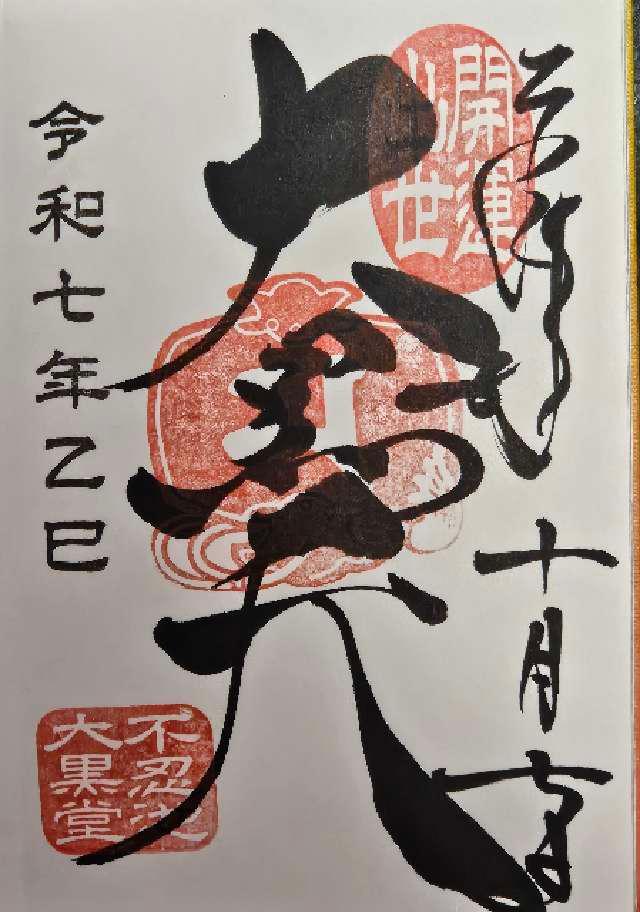 十月
開運
出世
大黒天
令和七年乙巳
不忍池
大黒堂